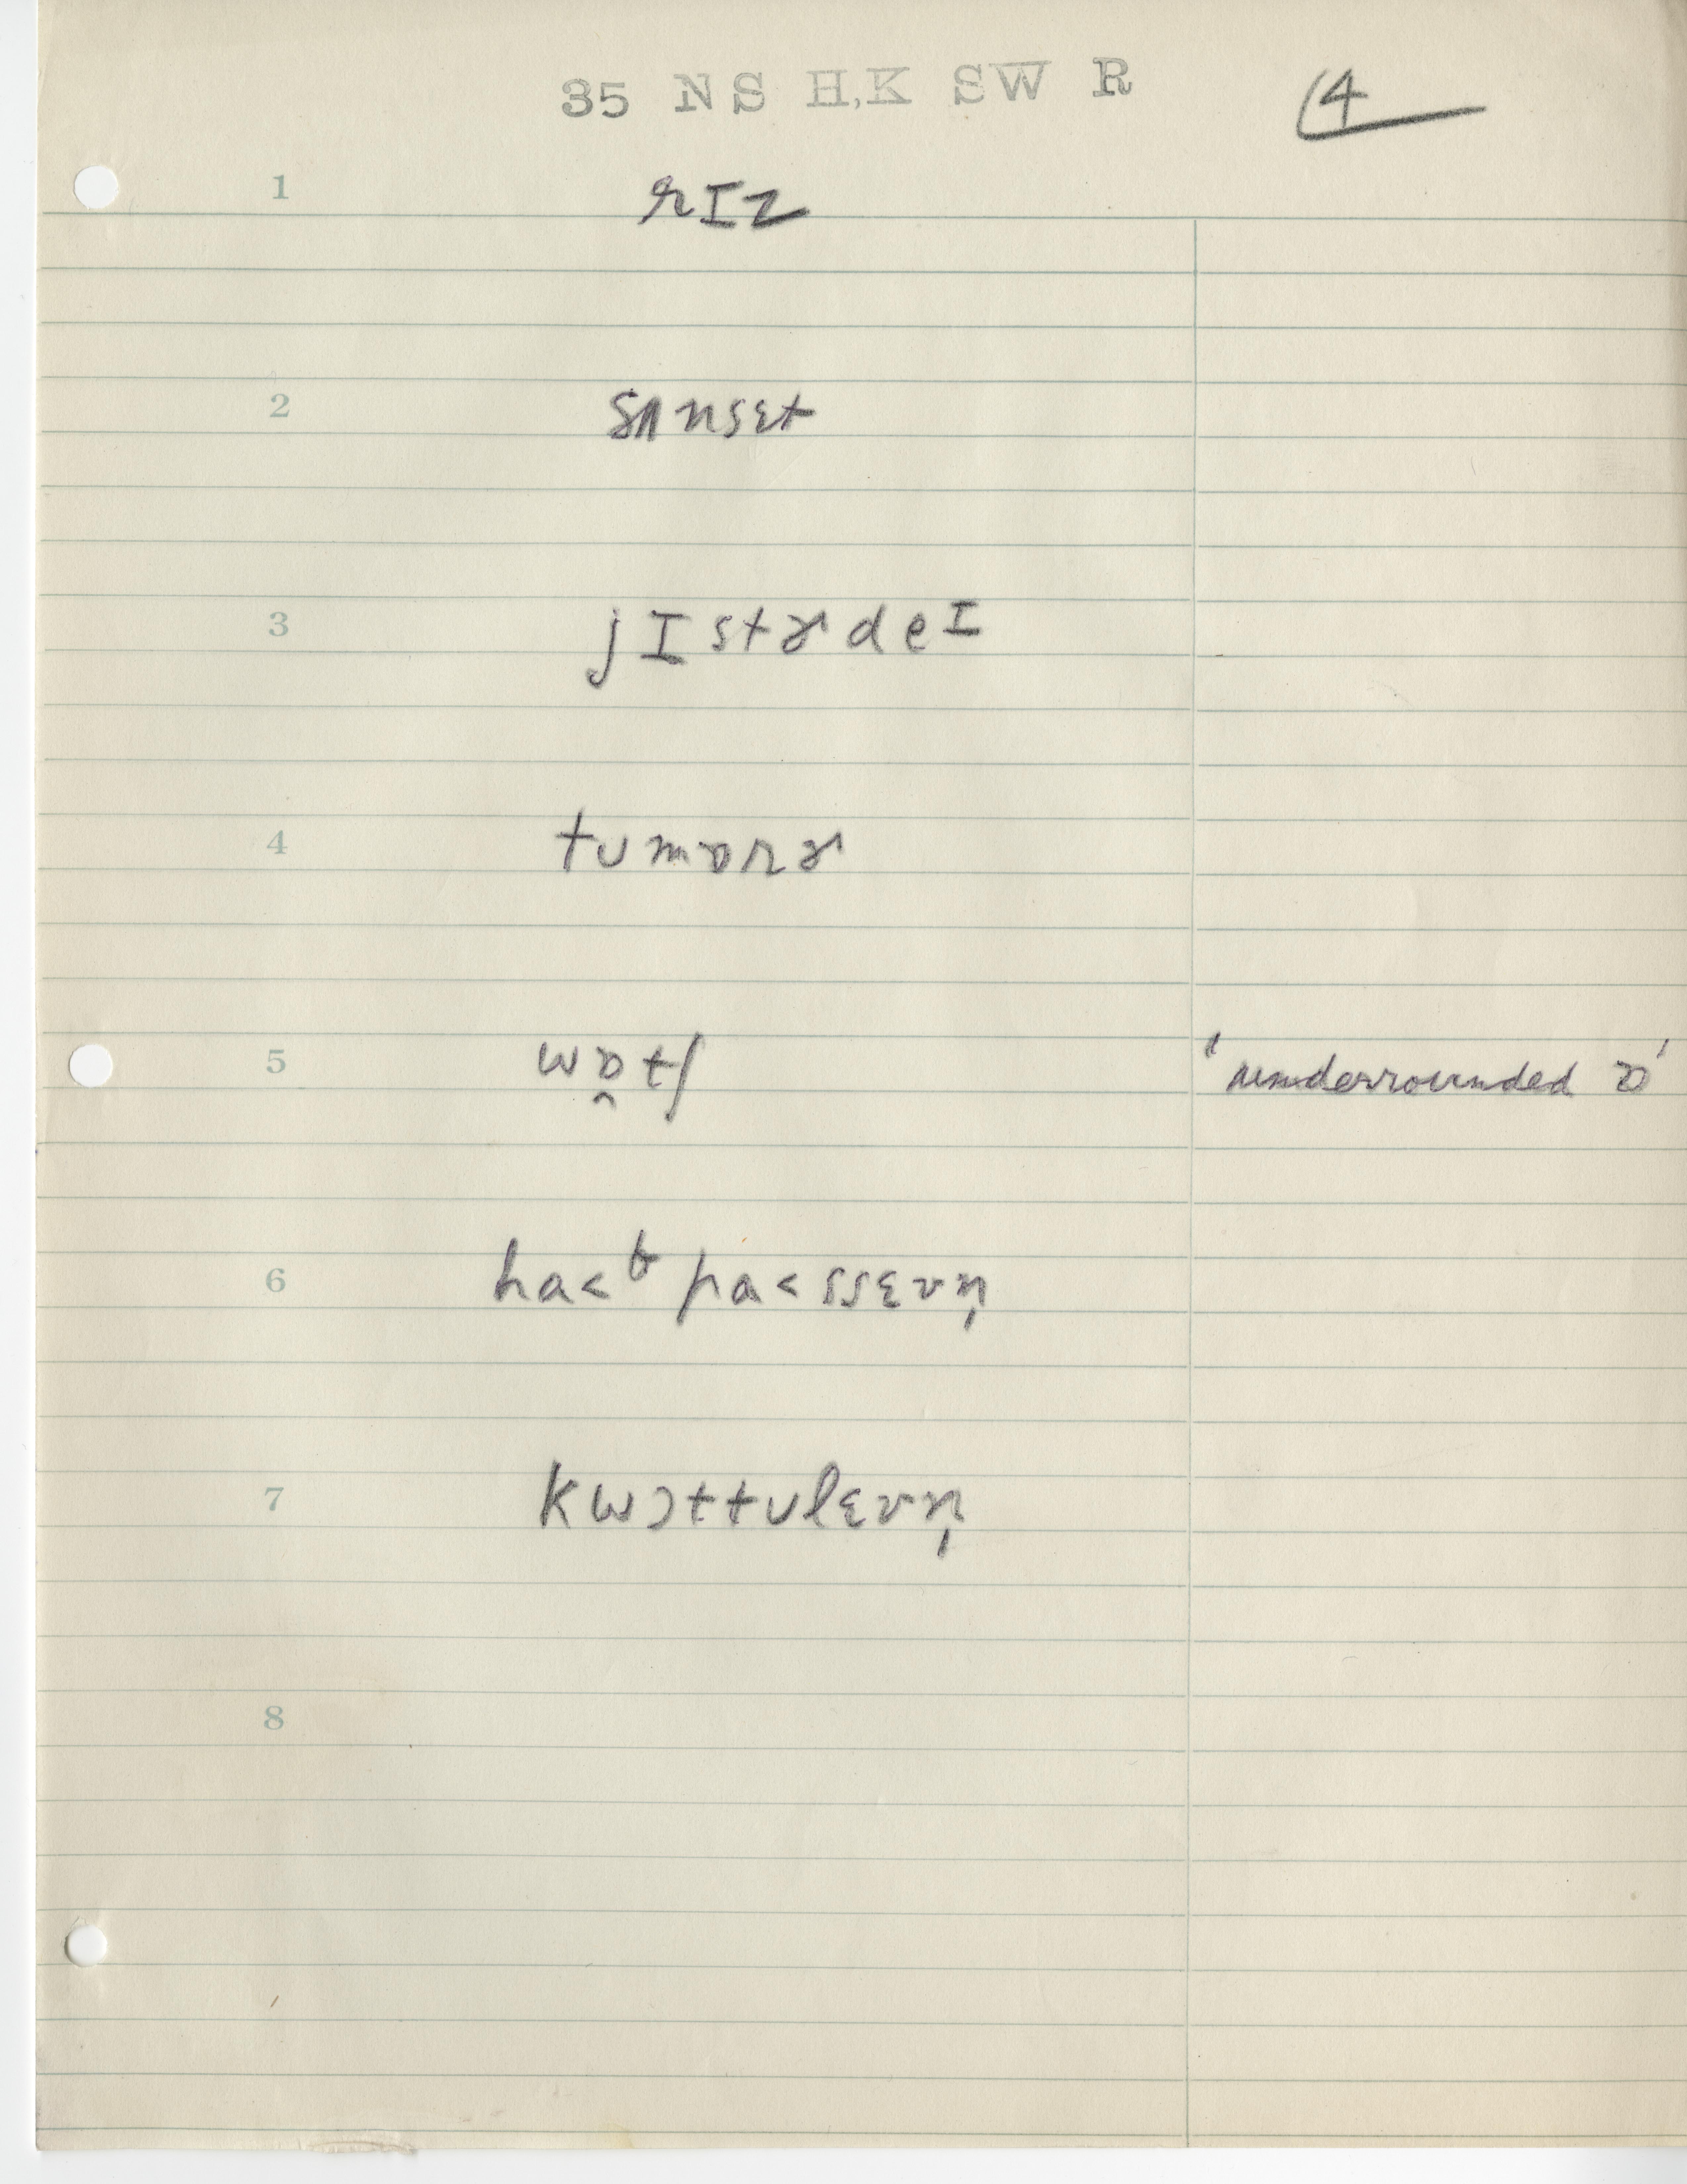 35 NS H,K SW R
4
1 rɪz
2 sʌnsɛt
3 jɪstɚdeᴵ
4 tumɒrɚ
5 wɒ̭tʃ 'underrounded ɒ'
6 ha<f pa<ssɛvn̩
7 kwɔttulɛvn̩
8